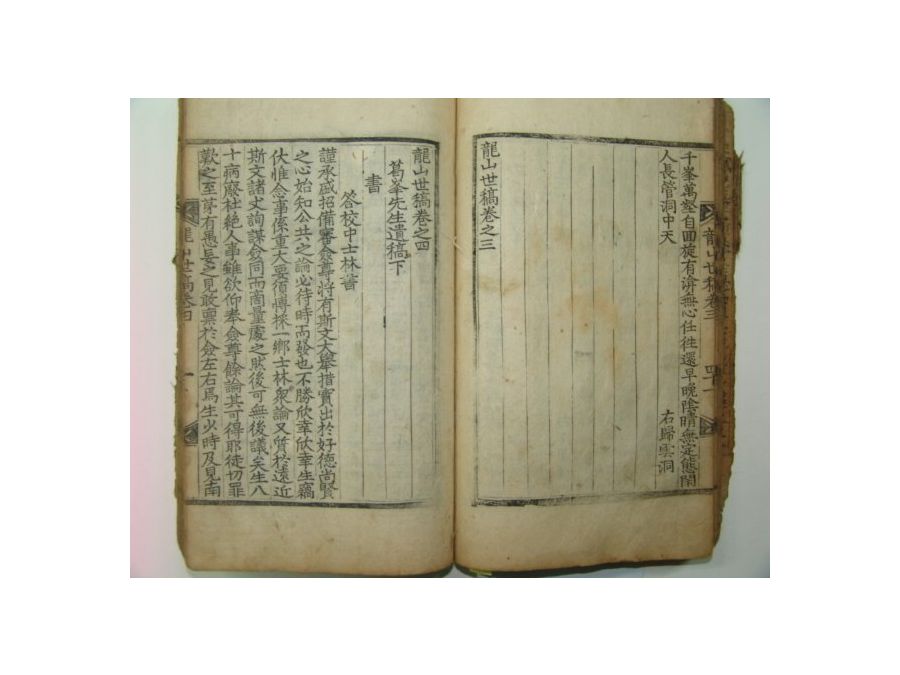 千峯萬壑自回旋有濟無心任往還早晚陰晴無定態閑
人長管洞中天
右歸雲洞
龍山世稿卷之三
龍山世稿卷三
四十一
龍山世稿卷之四
葛峯先生遺稿下
書
答校中士林書
謹承盛招備審僉尊將有斯文大擧措實出於好德尚賢
之心始知公共之論必待時而發也不勝欣幸欣幸生竊
伏惟念事係重大要須博採一鄉士林衆論又質於遠近
斯文諸丈詢謀僉同而商量處之然後可無後議矣生八
十病廢杜絶人事雖欲仰奉僉尊餘論其可得耶徒切罪
歎之至第有愚妄之見敢禀於僉左右焉生少時及見南
龍山世稿卷四
一